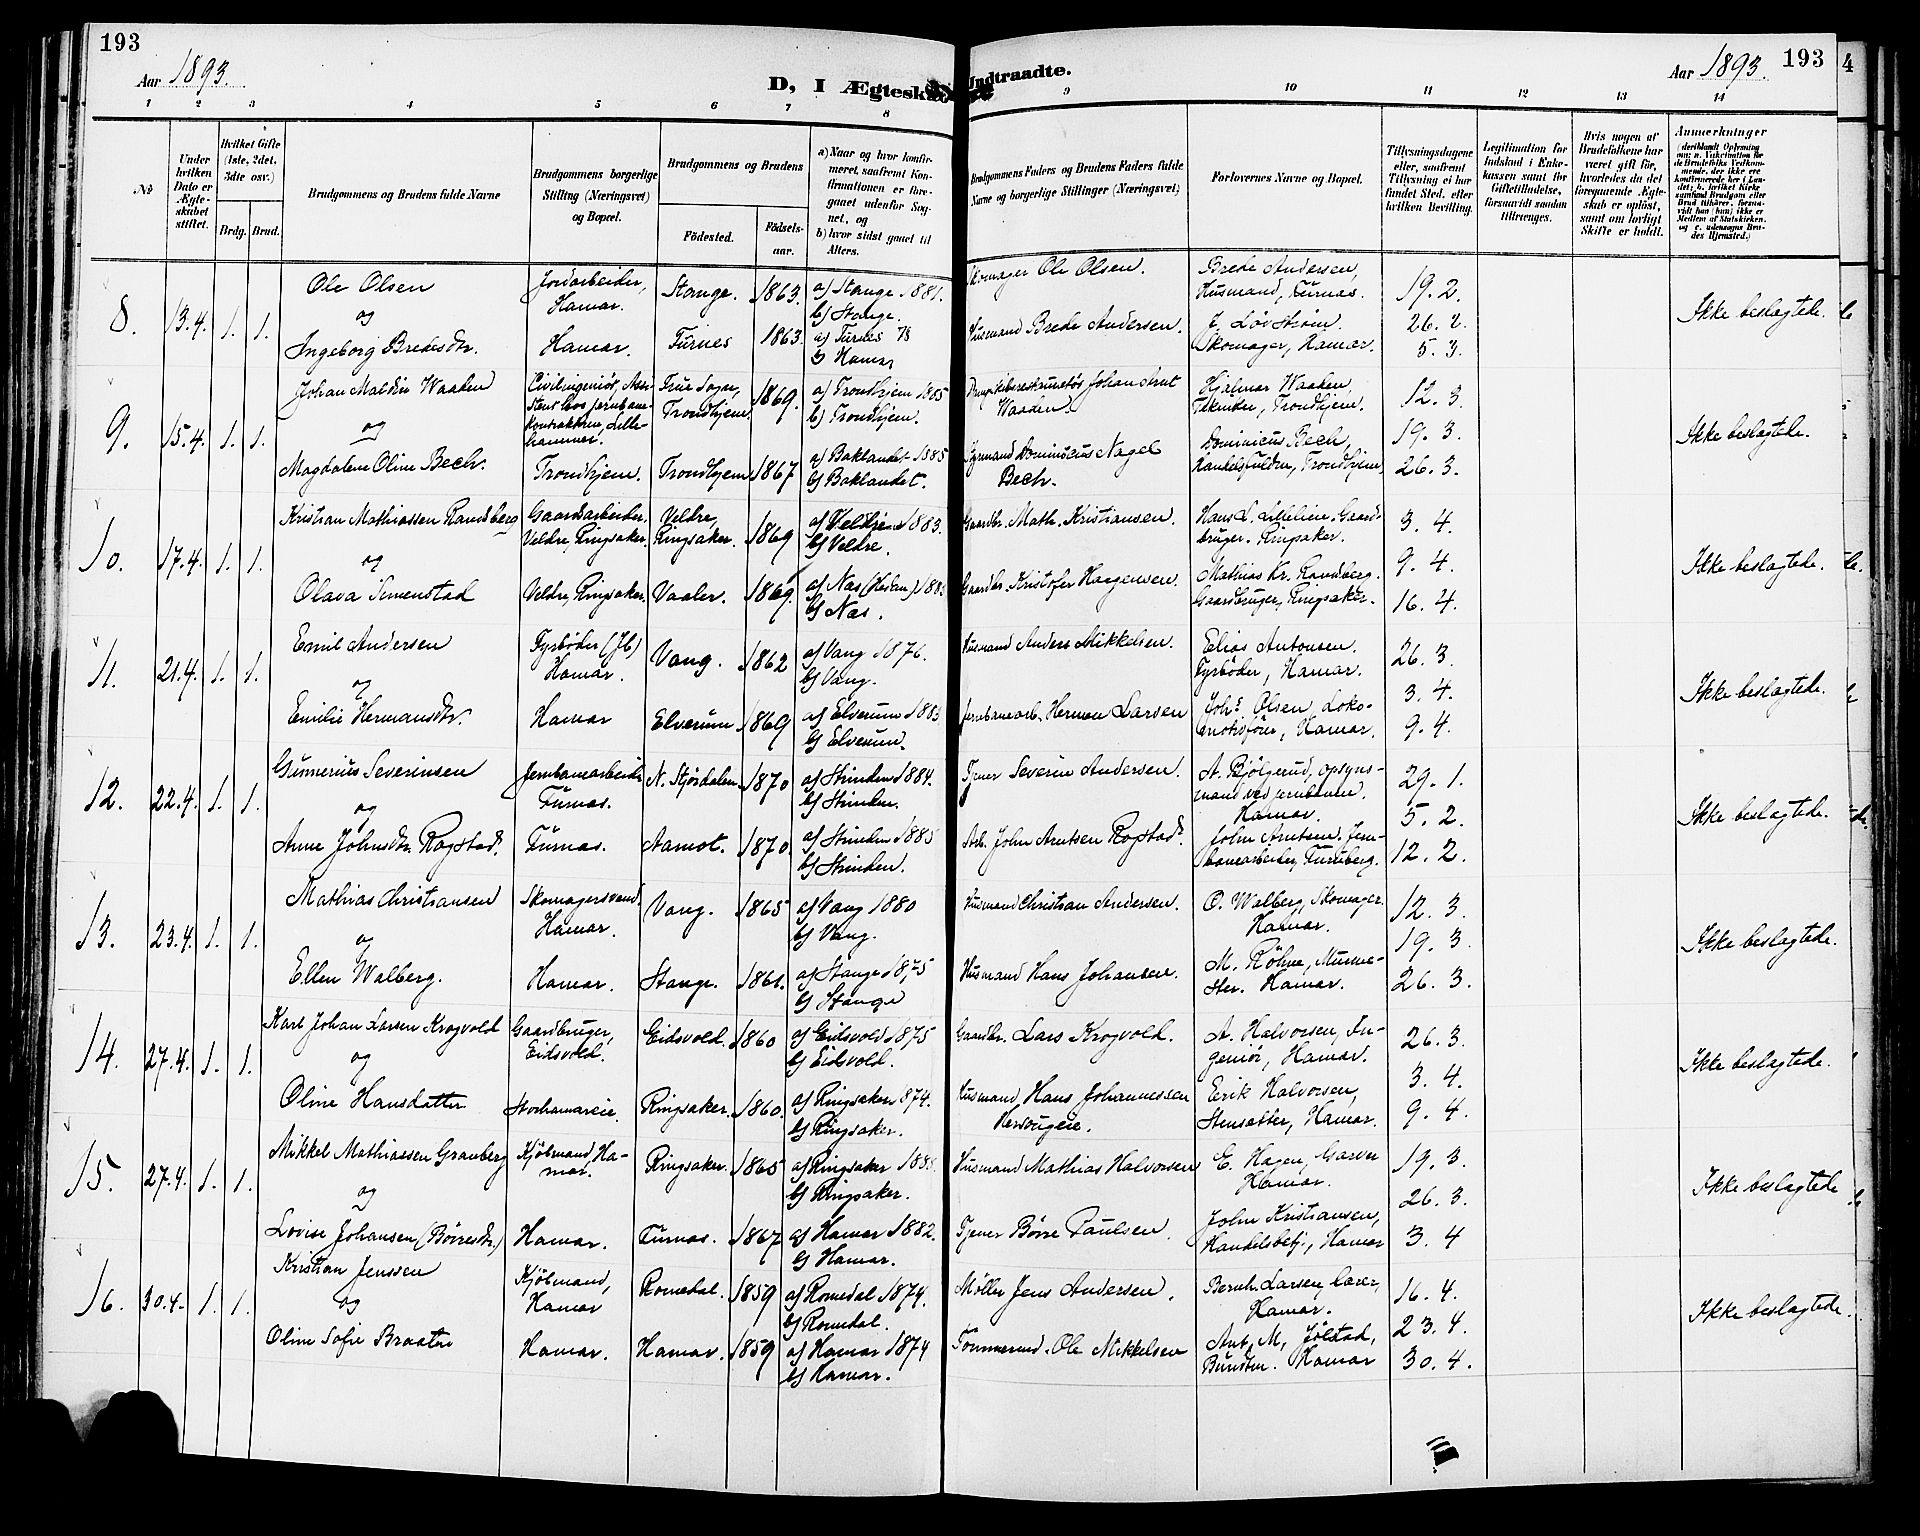 193
Aar 1893.
D, I Ægteska
Indtraadte.
Aar 1893.
193
4
1 2 3 4 5 6 7 8 9 10 11 12 13 14
No
Under hvilken Dato er Ægteskabet stiftet.
Hvilket Gifte (1ste, 2det, 3dte osv.)
Brdg. Brud.
Brudgommens og Brudens fulde Navne
Brudgommens borgerlige Stilling (Næringsvei) og Bopæl.
Brudgommens og Brudens
Födested.
Födsels-aar.
a) Naar og hvor konfirmeret, saafremt Konfirmationen er foregaaet udenfor Sognet, og
b) hvor sidst gaaet til Alters.
Brudgommens Faders og Brudens Faders fulde Navne og borgerlige Stillinger (Næringsvei)
Forlovernes Navne og Bopæl.
Tillysningsdagene eller, saafremt Tillysning ei har fundet Sted, efter hvilken Bevilling.
Legitimation for Indskud i Enkekassen samt for Giftetilladelse, forsaavidt saadan tiltrænges.
Hvis nogen af Brudefolkene har været gift før, hvorledes da det foregaaende Ægteskab er opløst, samt om lovligt Skifte er holdt.
Anmærkninger
8. 13.4. 1. 1.
Ole Olsen
og
Ingeborg Bredesdtr.
Jordarbeider,
Hamar.
Hamar.
Stange. 1863.
Furnes 1863.
a) Stange 1881.
b) Stange.
a) Furnes 78
b) Hamar
Skomager Ole Olsen.
Husmand Brede Andersen.
Brede Andersen,
Husmand, Furnas.
J. Løvstrøm
Skomager, Hamar.
19. 2.
26. 2.
5. 3.
Ikke beslagtede.
9. 15.4. 1. 1.
Johan Waaden
og
Magdalene Oline Bech.
Civilingeniør,
hammer.
Trondhjem.
Trondhjem 1869.
Trondhjem 1867
a) Trondhjem 1885
b) Trondhjem.
a) Baklandet 1885
b) Baklandet.
Johan Arnt
Waaden.
Dominicus Nagel
Bech.
Hjalmar Waaden,
Tekniker, Trondhjem.
Dominicus Bech,
Trondhjem
12. 3.
19. 3.
26. 3.
Ikke beslagtede.
10. 17.4. 1. 1.
Kristian Mathiassen Randsberg
og
Olava Simenstad
Gaardarbeider,
Veldre, Ringsaker.
Veldre, Ringsaker.
Veldre,
Ringsaker. 1869
Vaaler. 1869.
a) Veldre 1883.
b) Veldre.
a) Næs (Hedem.) 1883
b) Næs.
Gaardbr. Math. Kristiansen.
Gaardbr. Kristofer Haagensen.
Hans L. Lillelien, Gaard-
bruger. Ringsaker.
Mathias Kr. Randberg.
Gaardbruger, Ringsaker.
3. 4.
9. 4.
16. 4.
Ikke beslagtede.
11. 21.4. 1. 1.
Emil Andersen
og
Emilie Hermansdtr.
Fyrbøder (Jb)
Hamar.
Hamar
Vang. 1862
Elverum 1869
a) Vang 1876.
b) Vang.
a) Elverum 1883
b) Elverum.
Husmand Anders Mikkelsen.
Jernbanearb. Herman Larsen
Elias Antonsen.
Fyrbøder, Hamar.
Johs. Olsen, Loko-
motivfører, Hamar.
26. 3.
3. 4.
9. 4.
Ikke beslagtede.
12. 22.4. 1. 1.
Gunnerius Severinsen
og
Anne Johnsdtr. Rogstad.
Jernbanearbeider
Furnas.
Furnas.
N. Stjørdalen 1870
Aamot. 1870.
a) Strinden 1884.
b) Strinden.
a) Strinden 1885
b) Strinden.
Tjener Severin Andersen.
Arb. John Arntsen Rogstad.
A. Bjølgerud, opsyns-
mand ved jernbanen.
Hamar.
John Arntsen, Jern-
banearbeider, Furuberg.
29. 1.
5. 2.
12. 2.
Ikke beslagtede.
13. 23.4. 1. 1.
Mathias Christiansen
og
Ellen Walberg.
Skomagersvend
Hamar.
Hamar.
Vang. 1865
Stange. 1861.
a) Vang 1880
b) Vang.
a) Stange 1875
b) Stange
Husmand Christian Andersen.
Husmand Hans Johansen.
O. Walberg, Skomager
Hamar.
M. Röhne, Murme-
ster. Hamar.
12. 3.
19. 3
26. 3.
Ikke beslagtede.
14. 27.4. 1. 1.
Karl Johan Larsen Krogvold
og
Oline Hansdatter
Gaardbruger,
Eidsvold.
Storhamareie.
Eidsvold. 1860
Ringsaker. 1860.
a) Eidsvold 1875
b) Eidsvold.
a) Ringsaker 1874.
b) Ringsaker.
Gaardbr. Lars Krogvold.
Husmand, Hans Johannessen
A. Halvorsen, In-
geniør, Hamar.
Erik Halvorsen,
Stensætter, Hamar.
26. 3.
3. 4.
9. 4.
Ikke beslagtede.
15. 27.4. 1. 1.
Mikkel Mathiassen Granberg
og
Lovise Johansen (Børresdtr.)
Kjøbmand, Ha-
mar.
Hamar.
Ringsaker. 1865
Furnas. 1867
a) Ringsaker 188
b) Ringsaker.
a) Hamar 1882.
b) Hamar.
Husmand Mathias Halvorsen
Tjener Børre Paulsen.
E. Hagen, Garver
Hamar.
John Kristiansen,
Handelsbetj., Hamar
19. 3.
26. 3.
3. 4
Ikke beslagtede
16. 30.4. 1. 1.
Kristian Jenssen
og
Oline Sofie Braaten
Kjøbmand,
Hamar
Hamar.
Romedal. 1859
Hamar. 1859
a) Romedal 1874.
b) Romedal.
a) Hamar 1874
b) Hamar.
Møller Jens Andersen.
Tömmermd. Ole Mikkelsen
Bernh. Larsen,
Hamar.
Ant. M. Jölstad,
Hamar
16. 4.
23. 4.
30. 4.
Ikke beslagtede.